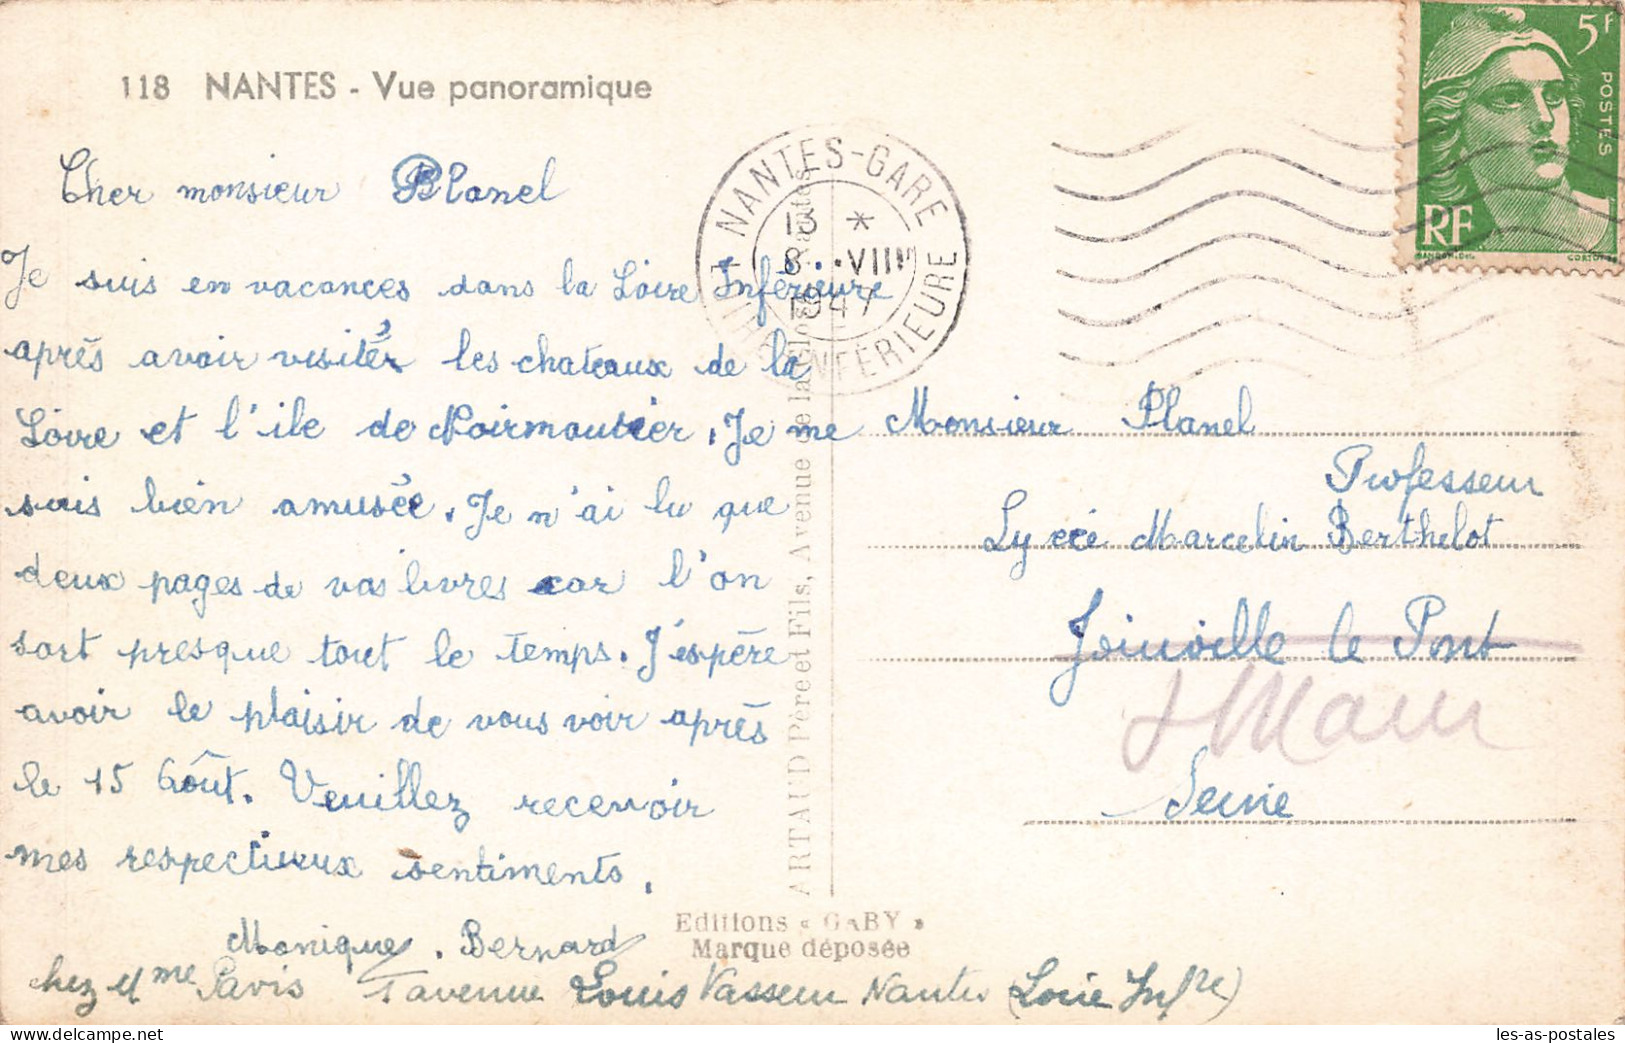 118 NANTES - Vue panoramique
Cher monsieur Planel
Je suis en vacances dans la Loire Inférieure
après avoir visitér les chateaux de la
Loire et l'ile de Noirmoutier. Je me
suis bien amusée. Je n'ai lu que
deux pages de vos livres car l'on
sort presque tout le temps. J'espère
avoir le plaisir de vous voir après
le 15 Août. Veuillez recevoir
mes respectueux sentiments.
Monique. Bernard
chez Mme Pavis 1 avenue Louis Vasseur Nantes (Loire Infre)
NANTES-GARE
13 *
8 ..VIII
1947
INFÉRIEURE
5F
POSTES
RF
Monsieur Planel
Professeur
Lycée Marcelin Berthelot
Joinville le Pont
St Maur
Seine
ARTAUD Père et Fils, Avenue de la Close, Nantes
Editions « GABY »
Marque déposée
les-as-postales